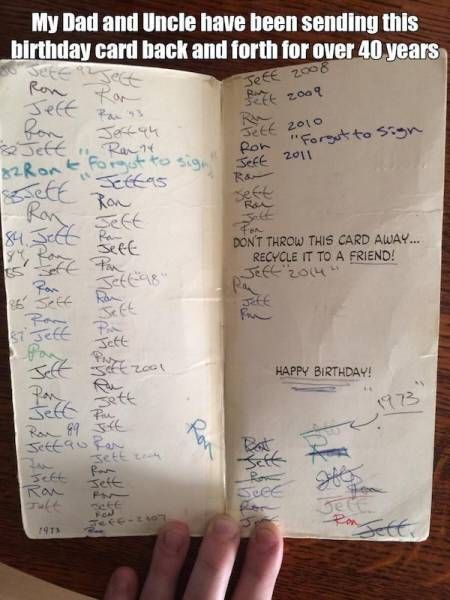 My Dad and Uncle have been sending this
birthday card back and forth for over 40 years
Jeff
Ron
Jeff
Ron
82 Jeff
82 Ron "Forgot to sign"
83 Jeff
Ron
84 Jeff
84 Ron
85 Jeff
Ron
86 Jeff
Ron
87 Jeff
Ron
Jeff
Ron
Jeff
Ron 89
Jeff 90
Ron
Jeff
Ron
Jeff
1973
92 Jeff
Ron
Ron 93
Jeff 94
Ron 94
Jeff 95
Ron
Jeff
Ron
Jeff
Ron
Jeff "98"
Ron
Jeff
Ron
Jeff
Ron
Jeff 2001
Ron
Jeff
Ron
Jeff
Ron
Jeff 2004
Ron
Jeff
Ron
Jeff
Ron
Jeff - 2007
Ron
Ron
Jeff 2008
Ron
Jeff 2009
Ron
Jeff 2010
Ron "Forgot to Sign
Jeff 2011
Ron
Jeff
Ron
Jeff
Ron
DON'T THROW THIS CARD AWAY...
RECYCLE IT TO A FRIEND!
Jeff "2014"
Ron
Jeff
Ron
HAPPY BIRTHDAY!
"1973"
Jeff
Ron
Jeff
Ron
Jeff
Jeff
Ron
Jeff